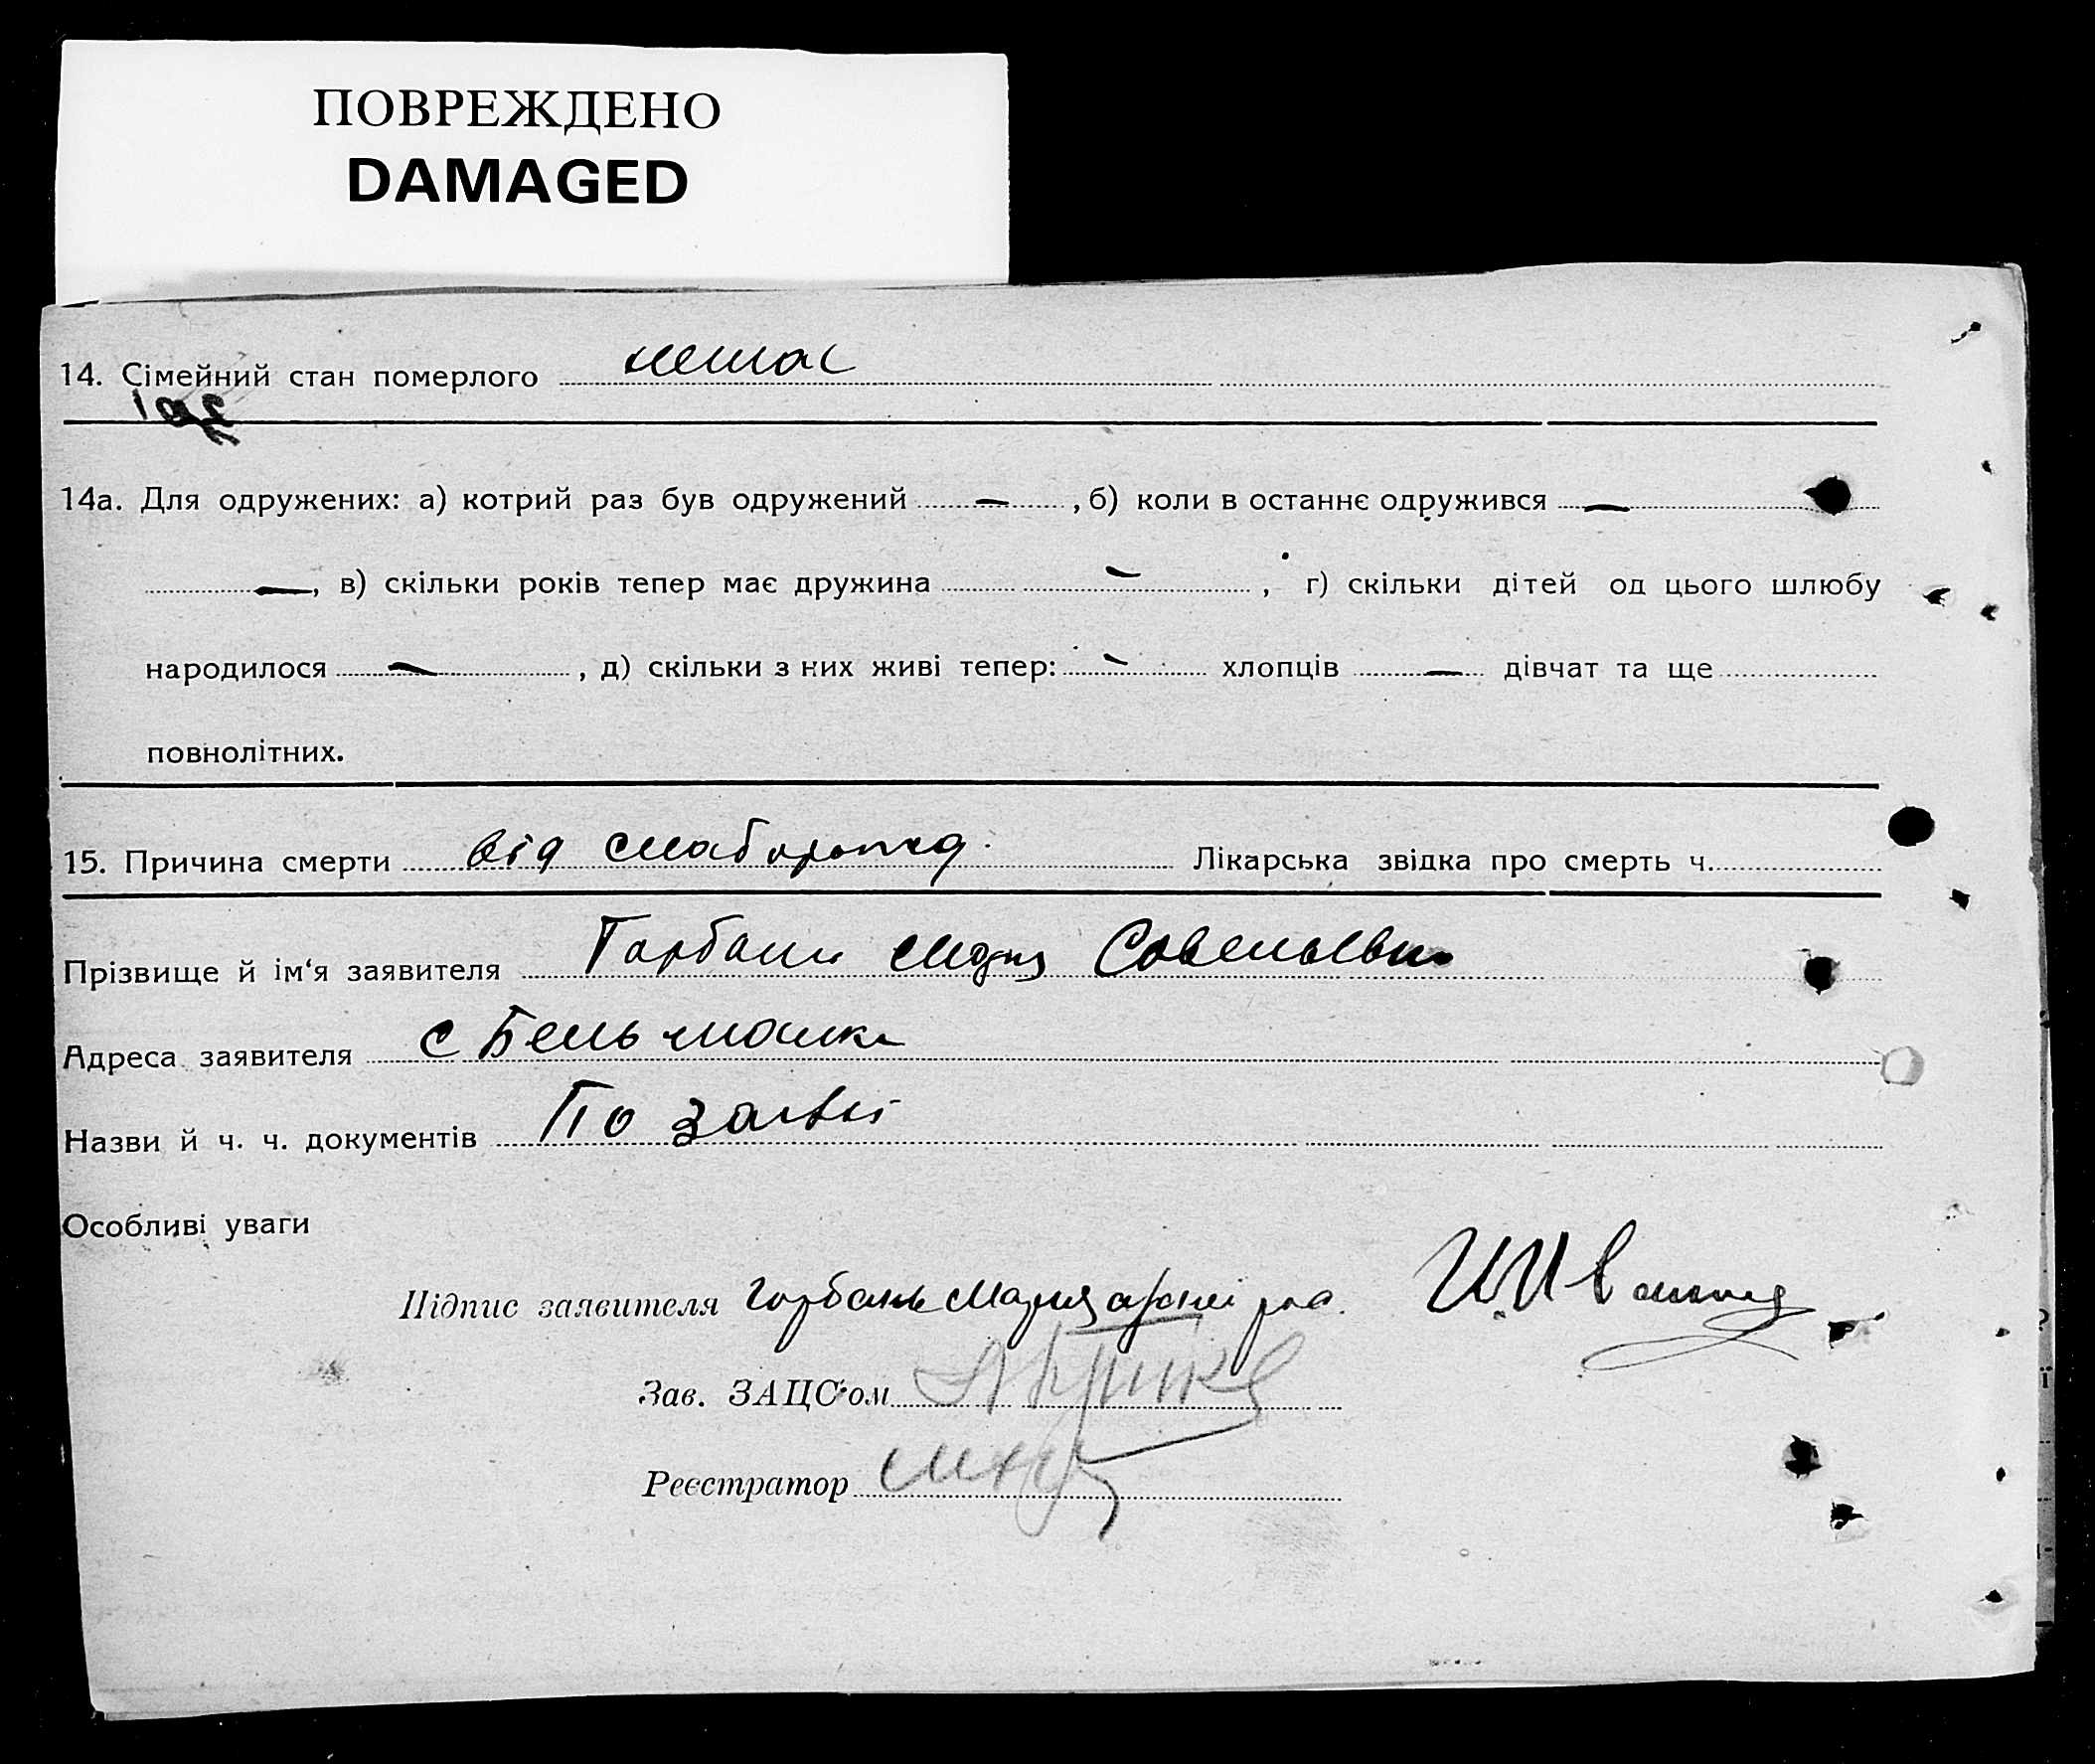 ПОВРЕЖДЕНО
DAMAGED
14. Сімейний стан померлого немає
14а. Для одружених: а) котрий раз був одружений —, б) коли в останнє одружився —
—, в) скільки років тепер має дружина —, г) скільки дітей од цього шлюбу
народилося —, д) скільки з них живі тепер: — хлопців — дівчат та ще
повнолітних.
15. Причина смерти від Лікарська звідка про смерть ч.
Прізвище й ім'я заявителя Горбань Савельевн
Адреса заявителя с Бельманка
Назви й ч. ч. документів По заяві
Особливі уваги
Підпис заявителя Горбань Мария
Зав. ЗАЦС'ом
Реєстратор